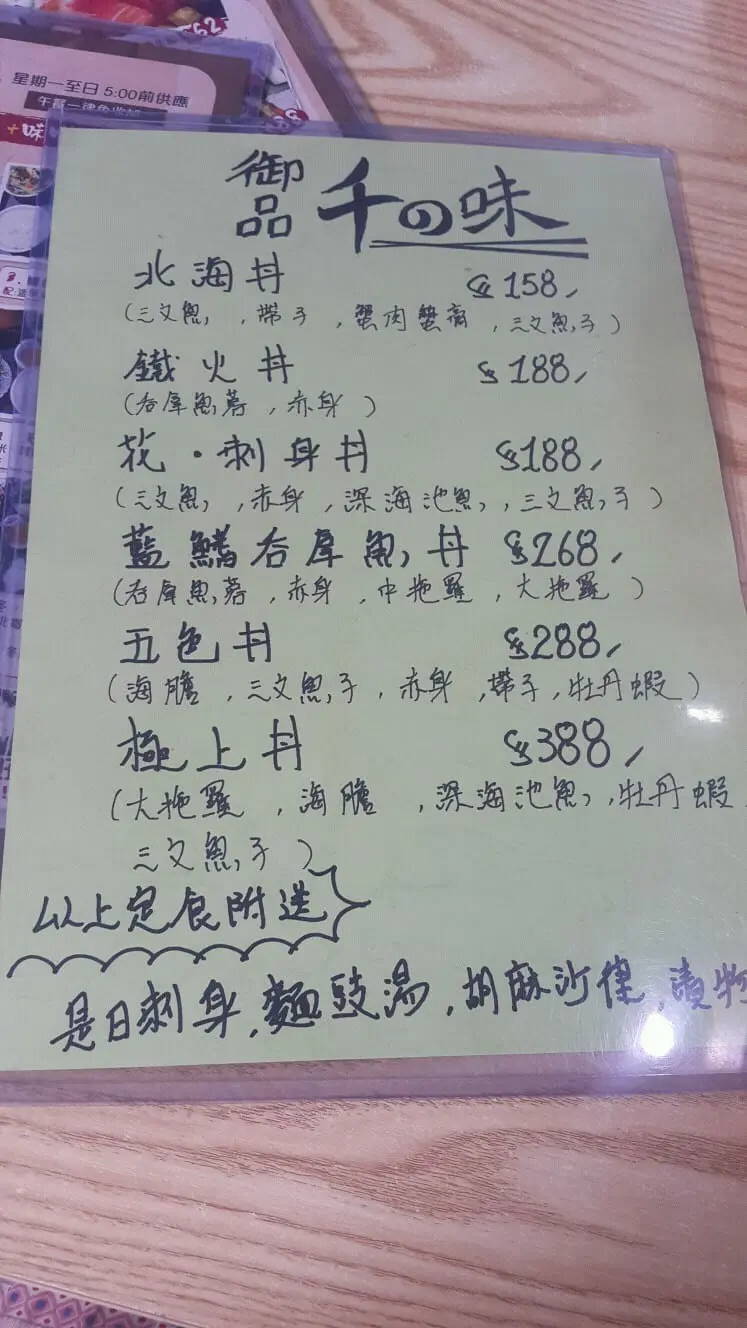 星期一至日 5:00前供應
御品 千の味
北海丼 $158,
(三文魚,帶子,蟹肉蟹膏,三文魚子)
鐵火丼 $188,
(吞拿魚蓉,赤身)
花・刺身丼 $188,
(三文魚,赤身,深海池魚,三文魚子)
藍鰭吞拿魚丼 $268,
(吞拿魚蓉,赤身,中拖羅,大拖羅)
五色丼 $288,
(海膽,三文魚子,赤身,帶子,牡丹蝦)
極上丼 $388,
(大拖羅,海膽,深海池魚,牡丹蝦
三文魚子)
以上定食附送
是日刺身,麵豉湯,胡麻沙律,漬物